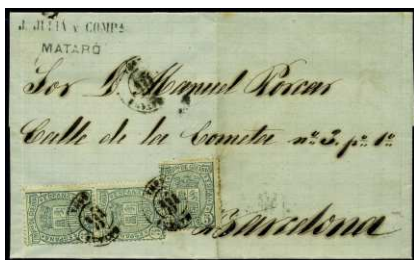 J. JULIÁ Y COMPª
MATARÓ
Sor D. Manuel Porcar
Calle de la Cometa nº 3. pº 1º
Barcelona